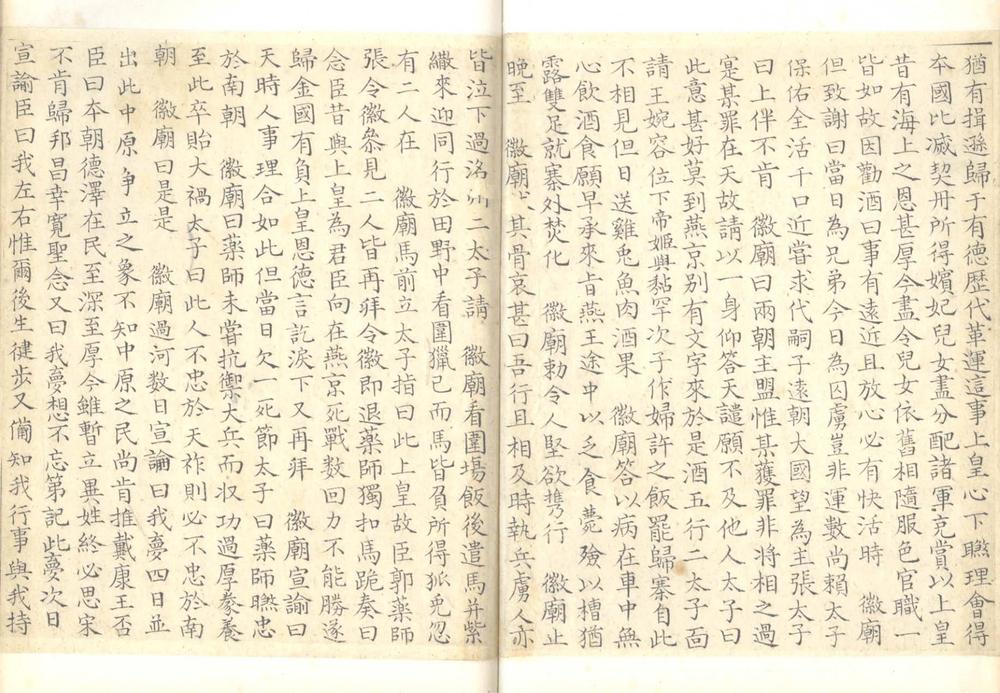 猶有揖遜歸于有德歷代革運這事上皇心下㬠理會得
夲國比滅契丹所得嬪妃兒女盡分配諸軍充賞以上皇
昔有海上之恩甚厚今盡令兒女依舊相隨服色官職一
皆如故因勸酒曰事有遠近且放心必有快活時　徽廟
但致謝曰當日為兄弟今日為囚虜豈非運數尚賴太子
保佑全活千口近嘗求代嗣子遠朝大國望為主張太子
曰上伴不肯　徽廟曰兩朝主盟惟某獲罪非將相之過
寔某罪在天故請以一身仰答天譴願不及他人太子曰
此意甚好莫到燕京別有文字來於是酒五行二太子面
請王婉容位下帝姬與黏罕次子作婦許之飯罷歸寨自此
不相見但日送雞兎魚肉酒果　徽廟答以病在車中無
心飲酒食願早承來旨燕王途中以乏食薨殮以槽猶
露雙足就寨外焚化　徽廟勅令人堅欲攜行　徽廟止
晚至　徽廟　其骨哀甚曰吾行且相及時執兵虜人亦
皆泣下過洺州二太子請　徽廟看圍場飯後遣馬并紫
繖來迎同行於田野中看圍獵已而馬皆負所得狐兎忽
有二人在　徽廟馬前立太子指曰此上皇故臣郭藥師
張令徽叅見二人皆再拜令徽即退藥師獨扣馬跪奏曰
念臣昔與上皇為君臣向在燕京死戰数回力不能勝遂
歸金國有負上皇恩德言訖淚下又再拜　徽廟宣諭曰
天時人事理合如此但當日欠一死節太子曰藥師㬠忠
於南朝　徽廟曰藥師未嘗抗禦大兵而収功過厚豢養
至此卒貽大禍太子曰此人不忠於天祚則必不忠於南
朝　徽廟曰是是　徽廟過河数日宣諭曰我夢四日並
出此中原争立之象不知中原之民尚肯推戴康王否
臣曰夲朝德澤在民至深至厚今雖暫立異姓終必思宋
不肯歸邦昌幸寬聖念又曰我夢想不忘第記此夢次日
宣諭臣曰我左右惟爾後生健步又備知我行事與我持